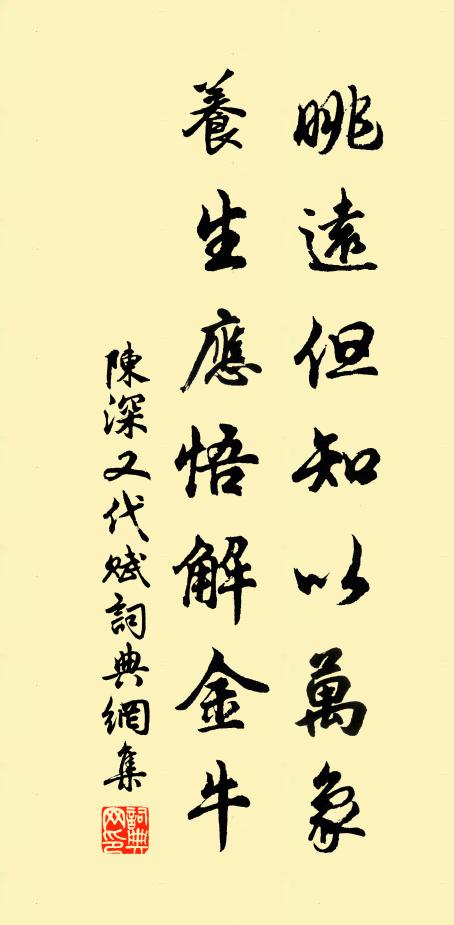 眺遠但知以萬象
養生應悟解金牛
陳深又代賦詞典網集
詞典
网印